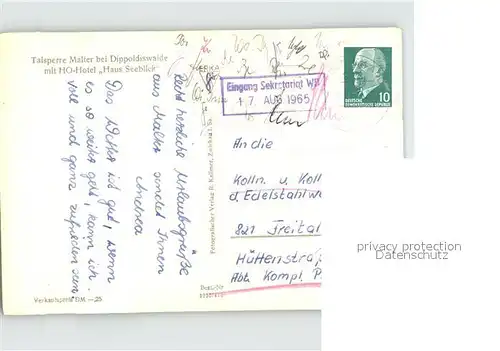 Talsperre Malter bei Dippoldiswalde
mit HO-Hotel „Haus Seeblick"
Recht herzliche Urlaubsgrüße
aus Malter sendet Ihnen
Andrea
Das Wetter ist gut, wenn
es so weiter geht, kann ich
voll und ganz zufrieden sein
Verkaufspreis DM —,25
Eingang Sekretariat WB
17. AUG 1965
DEUTSCHE
DEMOKRATISCHE REPUBLIK
10
An die
Kolln. u. Koll
d. Edelstahlw
821 Freital
Hüttenstraß
Abt. Kompl. P
Bestell-Nr
privacy protection
Datenschutz